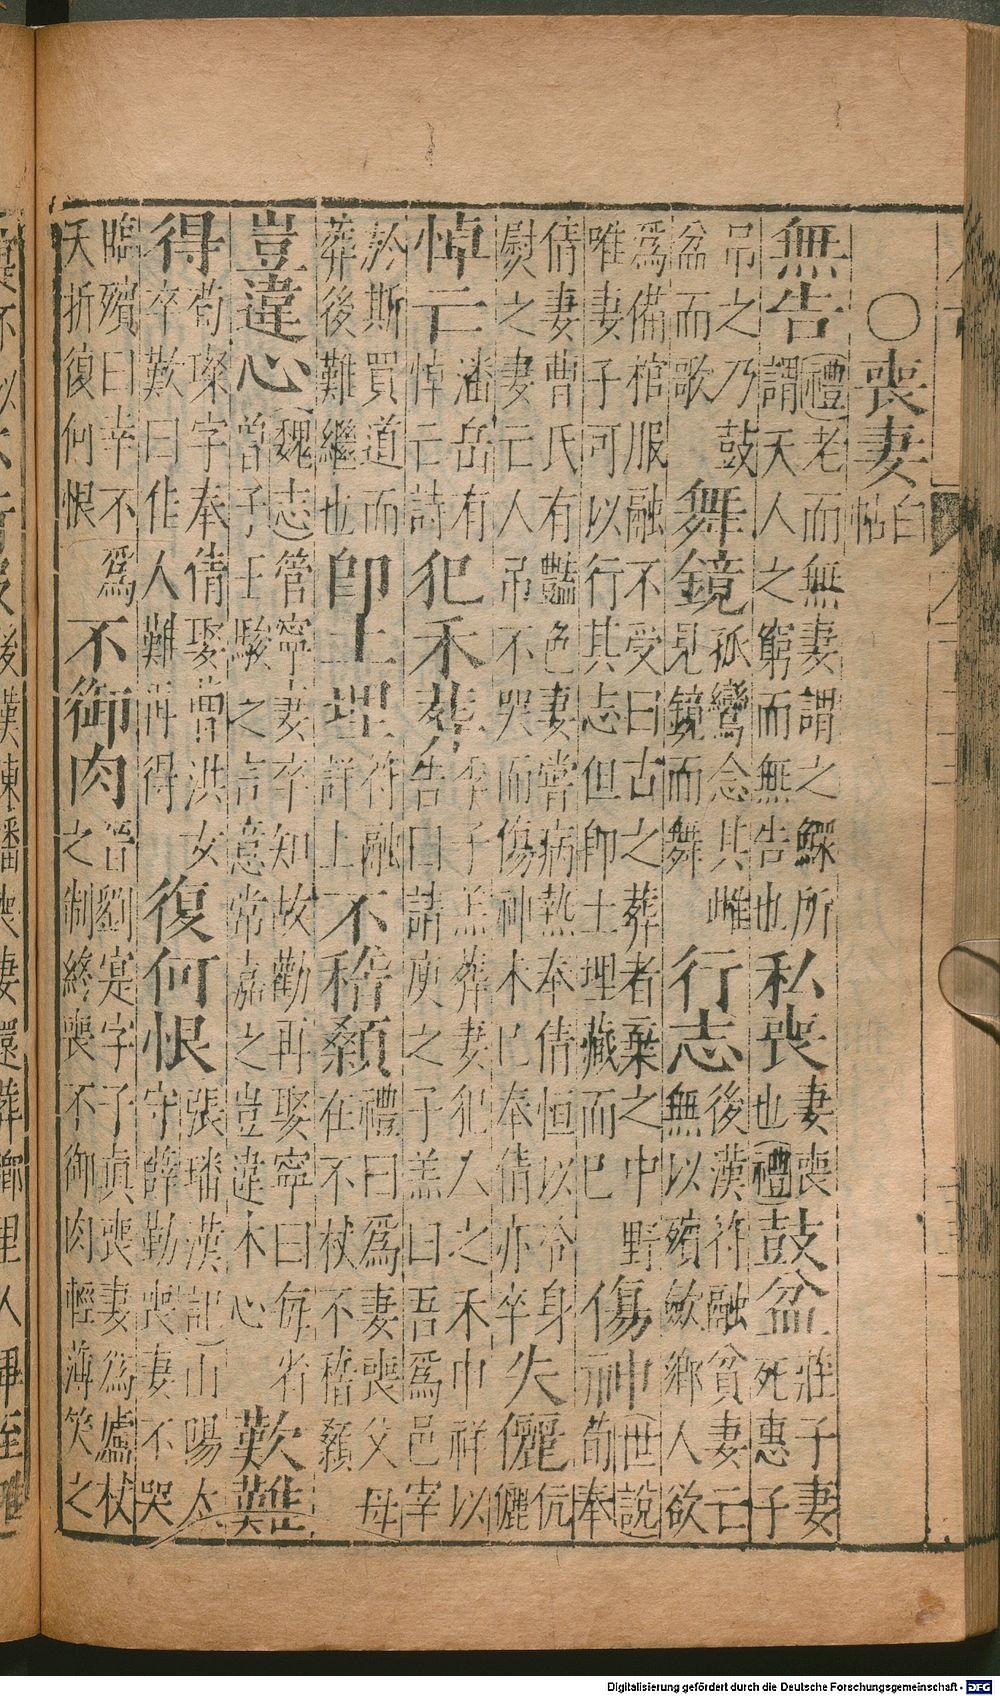 ○喪妻白帖
無告(禮)老而無妻謂之鰥所
謂天人之窮而無告也私喪妻喪
也(禮)鼓盆莊子妻
死惠子
吊之乃鼓
盆而歌舞鏡孤鸞念其雌
見鏡而舞行志後漢符融貧妻亡
無以殯斂鄉人欲
爲備棺服融不受曰古之葬者棄之中野
唯妻子可以行其志但即土埋藏而已傷神(世說
荀奉
倩妻曹氏有豔色妻嘗病熱奉倩恒以冷身
熨之妻亡人吊不哭而傷神未已奉倩亦卒失儷伉
儷
悼亡潘岳有
悼亡詩犯禾葬季子羔葬妻犯人之禾申祥以
告曰請庾之子羔曰吾爲邑宰
於斯買道而
葬後難繼也即土埋符融
詳上不稽顙禮曰爲妻喪父母
在不杖不稽顙
豈違心(魏志管寧妻卒知故勸再娶寧曰每省
曾子王駿之言意常嘉之豈違本心歎難
得荀璨字奉倩娶曹洪女
卒歎曰佳人難再得復何恨張璠漢記)山陽太
守薛勤喪妻不哭
臨殯曰幸不爲
夭折復何恨不御肉晉劉寔字子真喪妻爲廬杖
之制終喪不御肉輕薄笑之
後漢陳蕃喪妻還葬鄉里人畢至唯
Digitalisierung gefördert durch die Deutsche Forschungsgemeinschaft - DFG